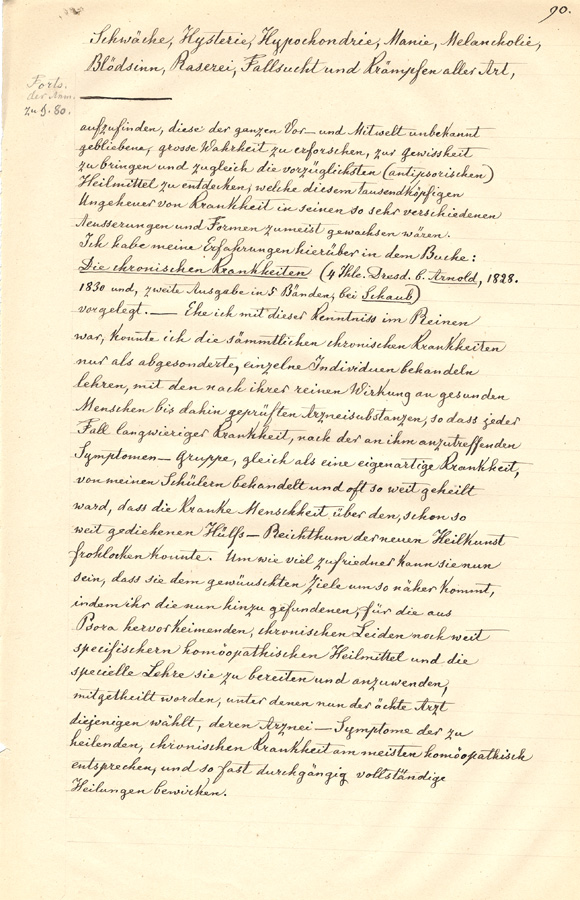 90.
Schwäche, Hysterie, Hypochondrie, Manie, Melancholie,
Blödsinn, Raserei, Fallsucht und Krämpfen aller Art,
Forts.
der Anm.
zu §. 80.
aufzufinden, diese der ganzen Vor- und Mitwelt unbekannt
gebliebene, grosse Wahrheit zu erforschen, zur Gewissheit
zu bringen und zugleich die vorzüglichsten (antipsorischen)
Heilmittel zu entdecken, welche diesem tausendköpfigen
Ungeheuer von Krankheit in seinen so sehr verschiedenen
Aeusserungen und Formen zumeist gewachsen wären.
Ich habe meine Erfahrungen hierüber in dem Buche:
Die chronischen Krankheiten (4 Thle. Dresd. b. Arnold, 1828.
1830 und, zweite Ausgabe in 5 Bänden, bei Schaub)
vorgelegt. — Ehe ich mit dieser Kenntniss im Reinen
war, konnte ich die sämmtlichen chronischen Krankheiten
nur als abgesonderte, einzelne Individuen behandeln
lehren, mit den nach ihrer reinen Wirkung an gesunden
Menschen bis dahin geprüften Arzneisubstanzen, so dass jeder
Fall langwieriger Krankheit, nach der an ihm anzutreffenden
Symptomen-Gruppe, gleich als eine eigenartige Krankheit,
von meinen Schülern behandelt und oft so weit geheilt
ward, dass die kranke Menschheit über den, schon so
weit gediehenen Hülfs-Reichthum der neuen Heilkunst
frohlocken konnte. Um wie viel zufriedner kann sie nun
sein, dass sie dem gewünschten Ziele um so näher kommt,
indem ihr die nun hinzu gefundenen, für die aus
Psora hervorkeimenden, chronischen Leiden noch weit
specifischern homöopathischen Heilmittel und die
specielle Lehre sie zu bereiten und anzuwenden,
mitgetheilt worden, unter denen nun der ächte Arzt
diejenigen wählt, deren Arznei-Symptome der zu
heilenden, chronischen Krankheit am meisten homöopathisch
entsprechen, und so fast durchgängig vollständige
Heilungen bewirken.